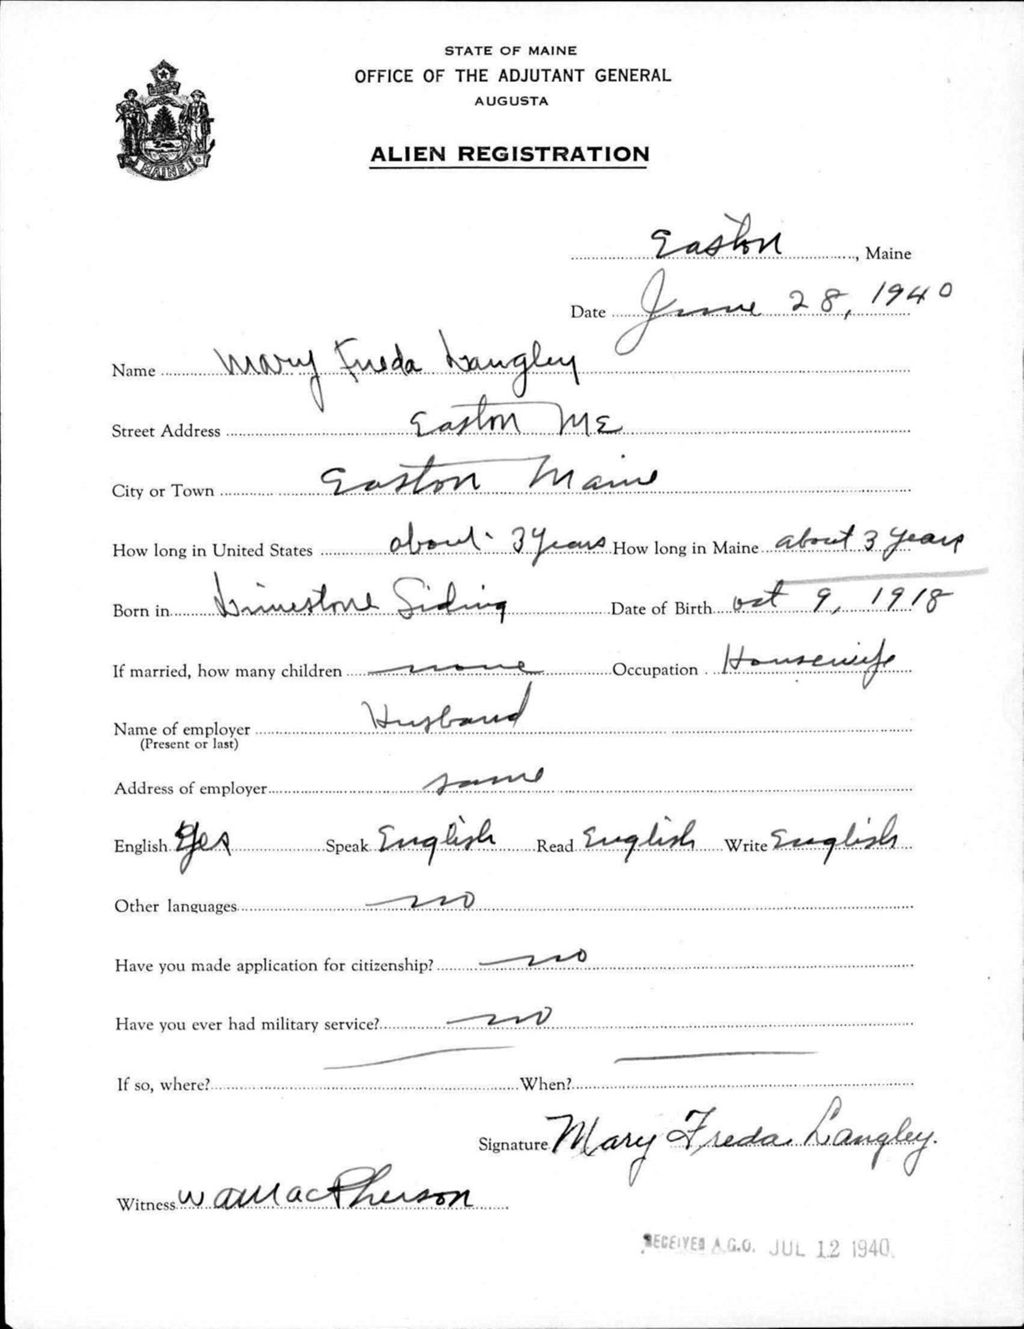 STATE OF MAINE
OFFICE OF THE ADJUTANT GENERAL
AUGUSTA
ALIEN REGISTRATION
MAINE
Easton, Maine
Date June 28, 1940
Name Mary Freda Langley
Street Address Easton ME
City or Town Easton Maine
How long in United States about 3 Years How long in Maine about 3 Years
Born in Limestone Siding Date of Birth oct 9, 1918
If married, how many children none Occupation Housewife
Name of employer Husband
(Present or last)
Address of employer same
English Yes Speak English Read English Write English
Other languages no
Have you made application for citizenship? no
Have you ever had military service? no
If so, where? When?
Signature Mary Freda Langley.
Witness W A MacPherson
RECEIVED A.G.O. JUL 12 1940